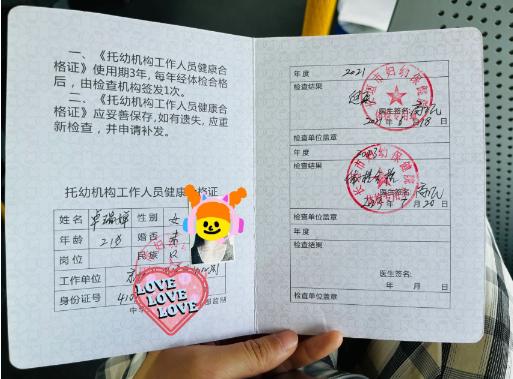 一、《托幼机构工作人员健康合
格证》使用期3年,每年经体检合格
后,由检查机构签发1次。
二、《托幼机构工作人员健康合
格证》应妥善保存,如有遗失,应重
新检查,并申请补发。
托幼机构工作人员健康合格证
姓名 性别 女
年龄 21岁 婚否 未
岗位 民族 汉
工作单位
身份证号 410
LOVE
LOVE
LOVE
年度 2021
检查结果
医生签名:
检查单位盖章
年度 2023
检查结果 体检合格
医生签名:
7月20日
检查单位盖章
年度
检查结果
医生签名:
年 月 日
检查单位盖章